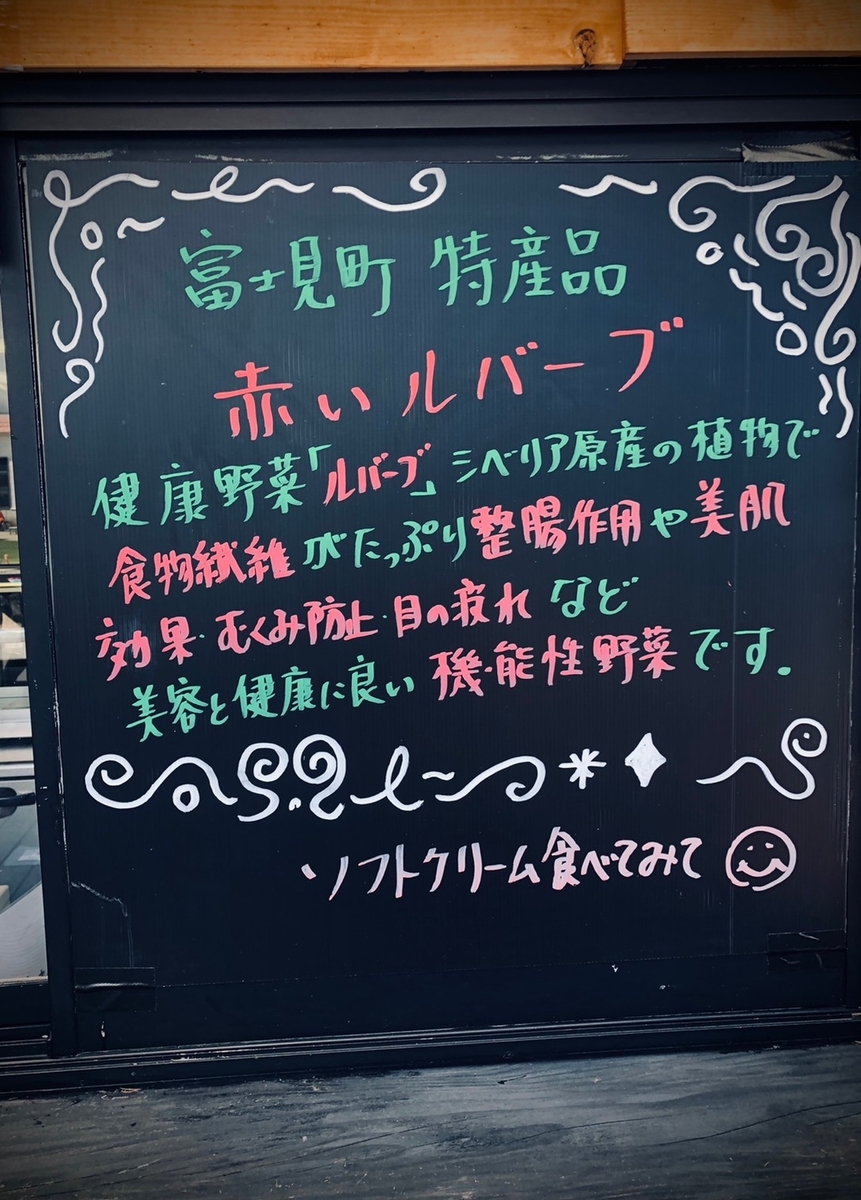 富士見町 特産品
赤いルバーブ
健康野菜「ルバーブ」シベリア原産の植物で
食物繊維がたっぷり整腸作用や美肌
効果・むくみ防止・目の疲れなど
美容と健康に良い機能性野菜です。
ソフトクリーム食べてみて